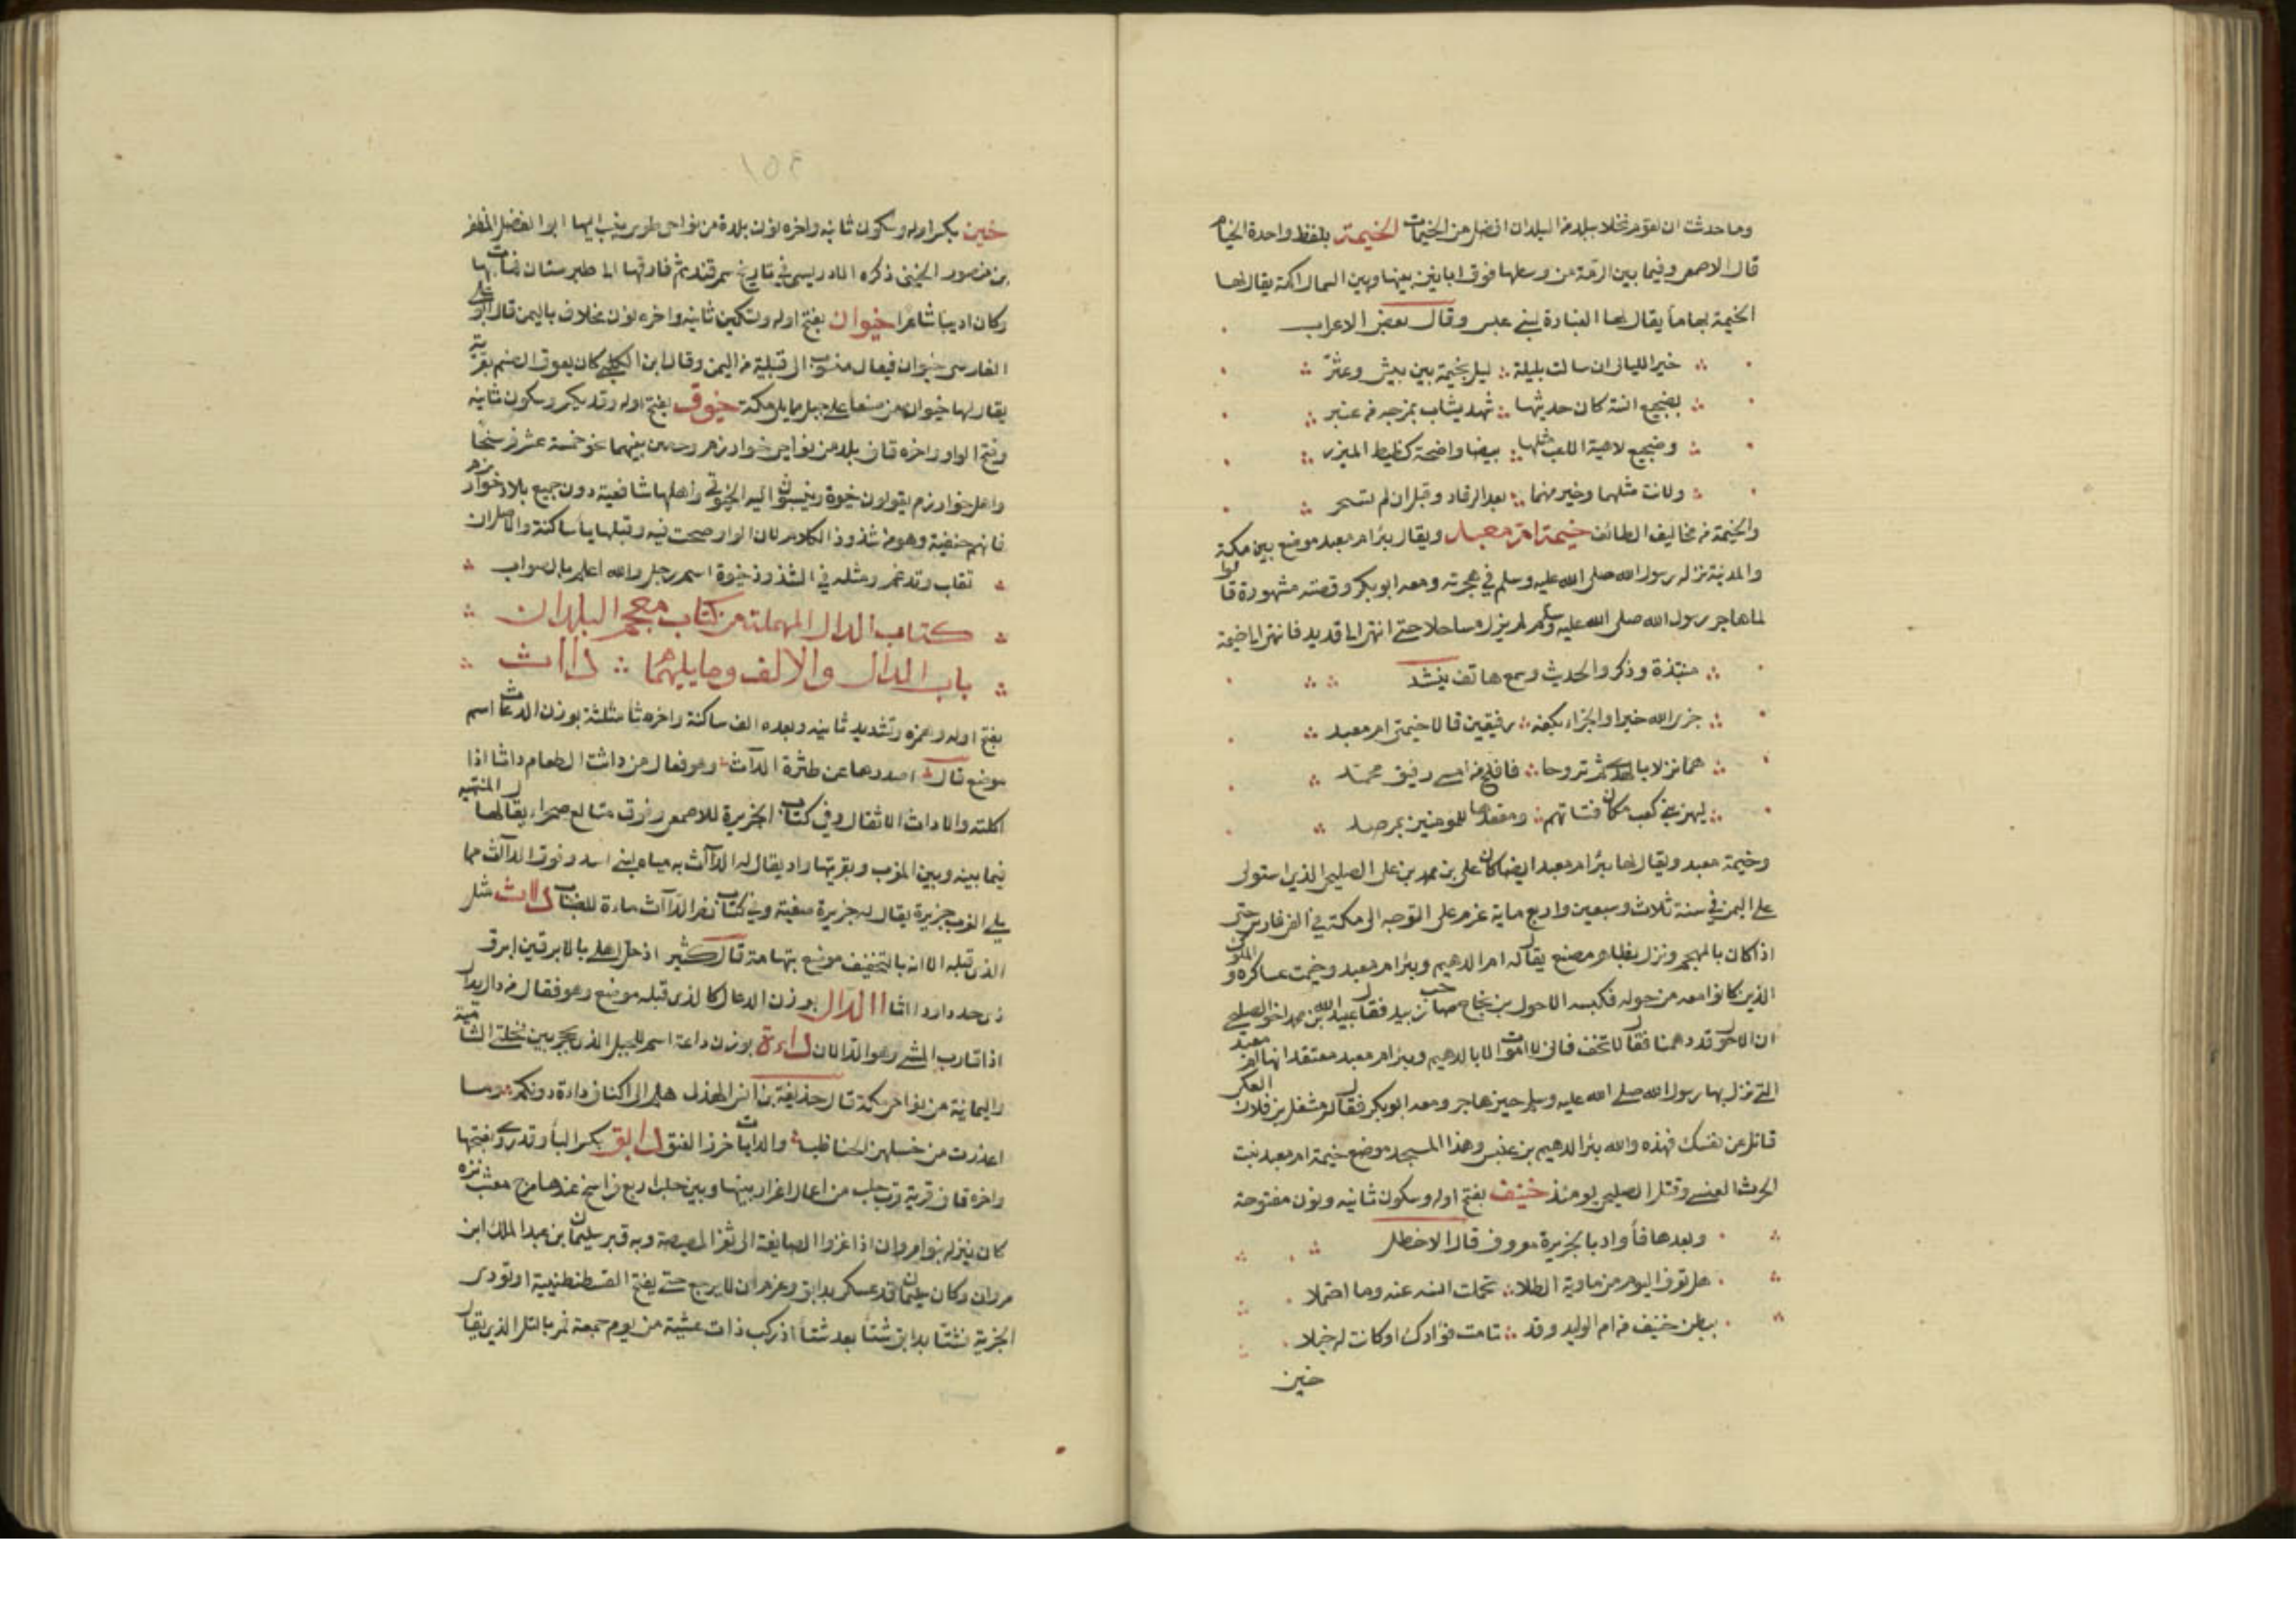 وما حدثت ان لقوم نخلا ببلد من البلدان افضل من الخيمات الخيمة بلفظ واحدة الخيام
قال الاصمعي وفيما بين الرمة من وسطها فوق ابانين بينها وبين الشمال اكمة يقال لها
الخيمة بها ماء يقال لها الغبارة لبني عبس وقال بعض الاعراب
خير الليالي ان سالت بليلة ليل بخيمة بين بيش وعثر
بضجيع انسة كان حديثها شهد يشاب بمزجه من عنبر
وضجيع لاهية الاعب مثلها بيضا واضحة كظيظ الميزر
ولانت مثلهما وخير منهما بعد الرقاد وقبل ان لم تسحر
والخيمة من مخاليف الطائف خيمة ام معبد ويقال بئر ام معبد موضع بين مكة
والمدينة نزله رسول الله صلى الله عليه وسلم في هجرته ومعه ابو بكر وقصته مشهورة قالوا
لما هاجر رسول الله صلى الله عليه وسلم لم يزل مساحلا حتى انتهى الى قديد فانتهى الى خيمة
منتبذة وذكروا الحديث وسمع هاتف ينشد
جزى الله خيرا والجزاء بكفه رفيقين قالا خيمتي ام معبد
هما نزلا بالهدى ثم تروحا فافلح من امسى رفيق محمد
ليهن بني كعب مكان فتاتهم ومقعدها للمومنين بمرصد
وخيمة معبد ويقال لها بئر ام معبد ايضا كان علي بن محمد بن علي الصليحي الذي استولى
على اليمن في سنة ثلاث وسبعين واربع ماية عزم على التوجه الى مكة في الفي فارس حتى
اذا كان بالمهجم ونزل بظاهر مصنع يقال له ام الدهيم وبئر ام معبد وخيمت عساكره والملوك
الذين كانوا معه من حوله فكبسه الاحول بن نجاح صاحب زبيد فقال عبد الله بن محمد اخو الصليحي
ان الاحول قد دهمنا فقال لا تخف فاني لا اموت الا بالدهيم وبئر ام معبد معتقدا انها ام معبد
التي نزل بها رسول الله صلى الله عليه وسلم حين هاجر ومعه ابو بكر فقال له مشعل بن فلان العكي
قاتل عن نفسك فهذه والله بئر الدهيم بن عنبس وهذا المسجد موضع خيمة ام معبد بنت
الحرث العنسي وقتل الصليحي يومئذ خينف بفتح اوله وسكون ثانيه ونون مفتوحة
وبعدها فاء واد بالجزيرة معروف قال الاخطل
هل تعرف اليوم من ماوية الطللا تحملت انسه عنه وما احتملا
ببطن خينف من ام الوليد وقد تامت فؤادك او كانت له خبلا
خين
١٥٤
خين بكسر اوله وسكون ثانيه واخره نون بلدة من نواحي طوس ينسب اليها ابو الفضل المظفر
بن منصور الخيني ذكره الادريسي في تاريخ سمرقند ثم فارقها الى طبرستان فمات بها
وكان اديبا شاعرا خيوان بفتح اوله وتسكين ثانيه واخره نون مخلاف باليمن قال ابو علي
الفارسي خيوان فيعال منسوب الى قبيلة من اليمن وقال ابن الكلبي كان يعوق الصنم بقرية
يقال لها خيوان من صنعا على ليل مما يلي مكة خيوق بفتح اوله وقد يكسر وسكون ثانيه
وفتح الواو واخره قاف بلد من نواحي خوارزم وحصن بينهما نحو خمسة عشر فرسخا
واهل خوارزم يقولون خيوة وينسبون اليه الخيوقي واهلها شافعية دون جميع بلاد خوارزم
فانهم حنفية وهو من شذوذ الكلام لان الواو صحت فيه وقبلها ياء ساكنة والاصل ان
تقلب وتدغم ومثله في الشذوذ خيوة اسم رجل والله اعلم بالصواب
كتاب الدال المهملة من كتاب معجم البلدان
باب الدال والالف وما يليهما دااث
بفتح اوله وهمزه وتشديد ثانيه وبعده الف ساكنة واخره ثا مثلثة بوزن الدعاث اسم
موضع قال اصدرها عن طثرة الدآث وهو فعال من داثت الطعام داثا اذا
اكلته والاداث الاثقال وفي كتاب الجزيرة للاصمعي وفوق متالع صحراء يقال لها المنتهبة
فيما بينه وبين المغرب وبقربتها واد يقال له الدآث به مياه لبني اسد وفوق الدآث مما
يلي الغرب جزيرة يقال له جزيرة صعبة وفي كتاب نصر الدآث مادة للضباب داث مثل
الذي قبله الا انه بالتخفيف موضع بتهامة قال كثير اذ حل اهلي بالابرقين ابرق
ذي جدد او داثا الدال بوزن الدعال كالذي قبله موضع وهو فعال من دال يدال
اذا قارب المشي وهو الدالان داءة بوزن داعة اسم للجبل الذي يحجز بين نخلتي الشامية
واليمانية من نواحي مكة قال حذيفة بن انس الهذلي هلم الى اكناف داءة دونكم وما
اغدرت من خسلهن الحناظب والدابات خرز العنق دابق بكسر الباء وقد روي بفتحها
واخره قاف قرية قرب حلب من اعمال اعزاز بينها وبين حلب اربع فراسخ عندها مرج معشب نزه
كان ينزله بنو امروان اذا غزوا الصايفة الى ثغر المصيصة وبه قبر سليمان بن عبد الملك ابن
مروان وكان سليمان قد عسكر بدابق وعزم ان لا يرجع حتى يفتح القسطنطينية او تودي
الجزية فشتا بدابق شتاء بعد شتاء اذ ركب ذات عشية من يوم جمعة فمر بالتل الذي يقال